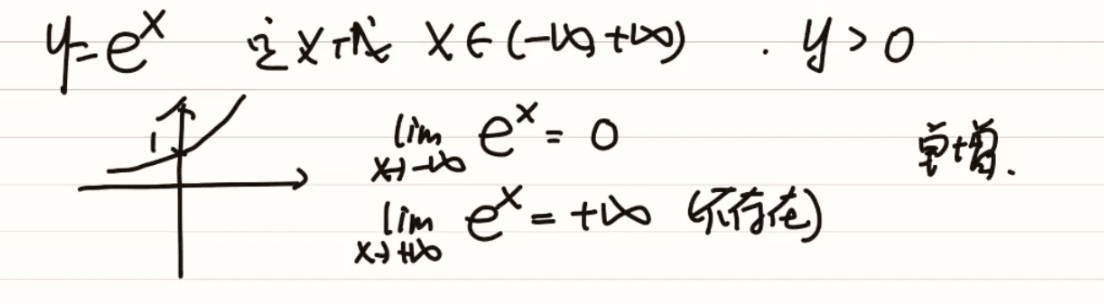 y=e^x 定义域 x∈(-∞,+∞) . y>0
1
lim x→-∞ e^x = 0 单增.
lim x→+∞ e^x = +∞ (不存在)